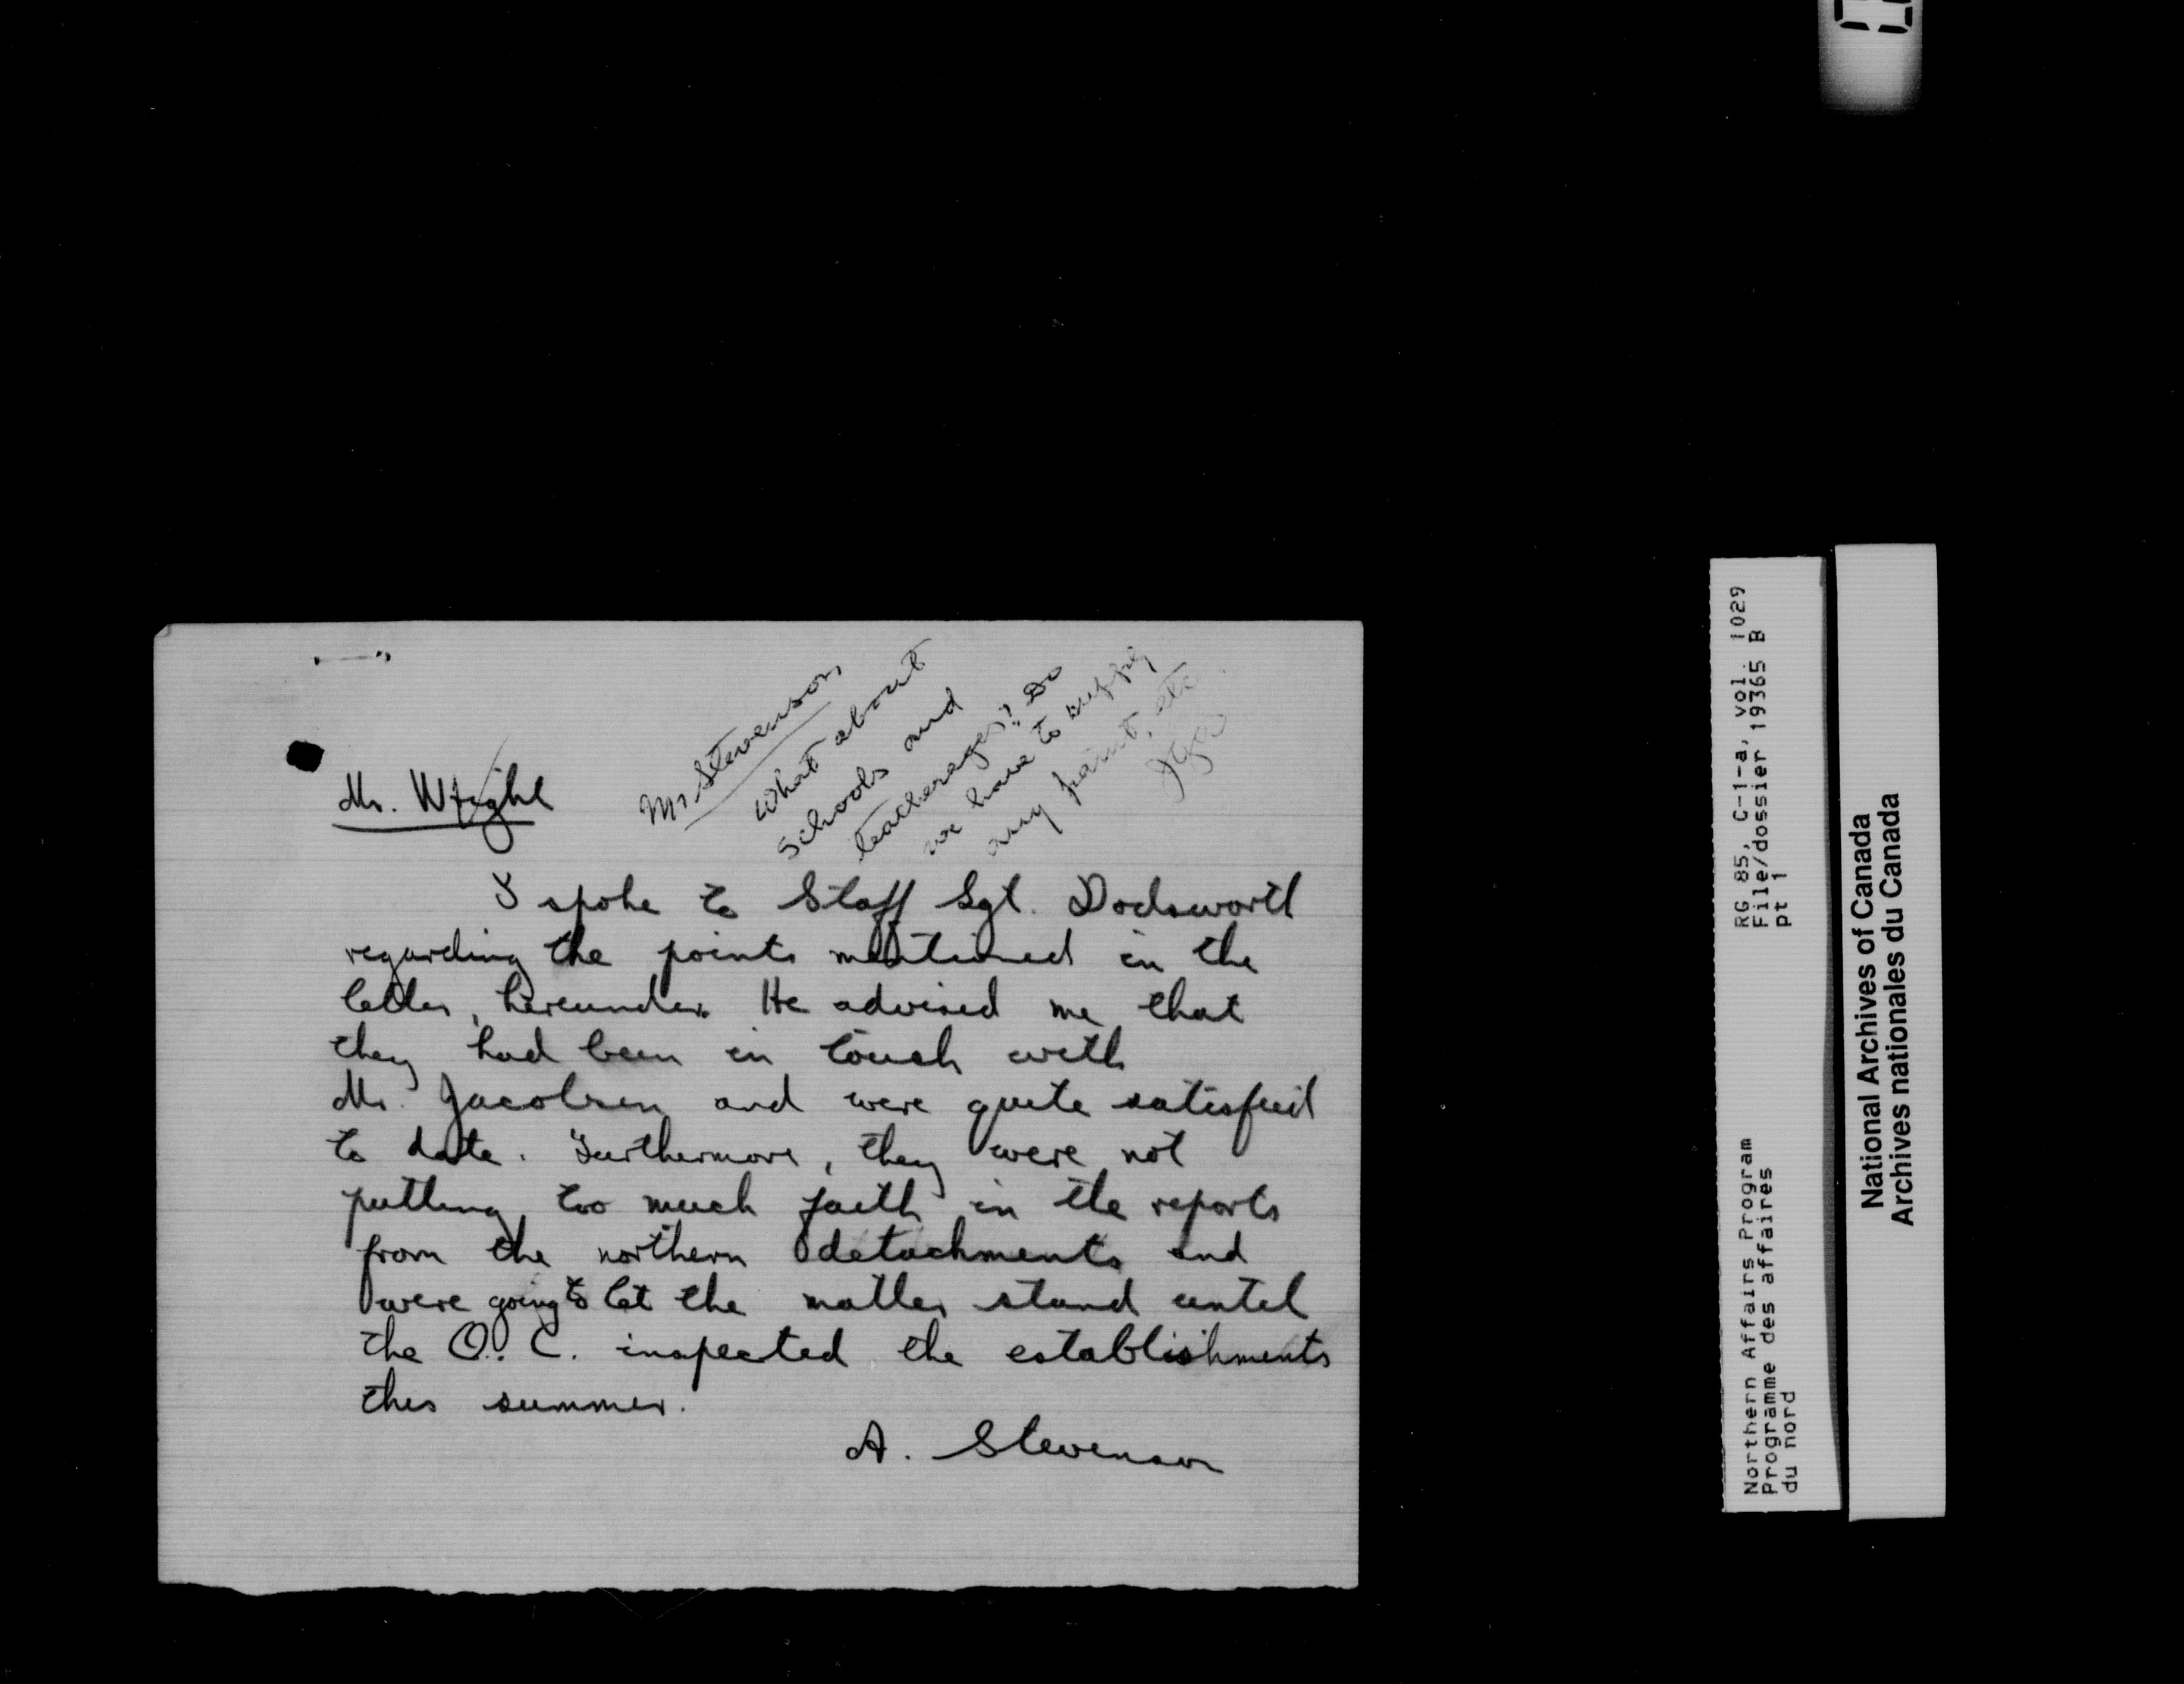 Mr. Wright
Mr Stevenson
What about
schools and
teacherages? Do
we have to supply
any paint, etc.
I spoke to Staff Sgt. Dodsworth
regarding the points mentioned in the
letter, hereunder. He advised me that
they had been in touch with
Mr. Jacobsen and were quite satisfied
to date. Furthermore, they were not
putting too much faith in the reports
from the northern detachments and
were going to let the matter stand until
the O. C. inspected the establishments
this summer.
A. Stevenson
RG 85, C-1-a, vol. 1029
File/dossier 19365 B
pt 1
Northern Affairs Program
Programme des affaires
du nord
National Archives of Canada
Archives nationales du Canada